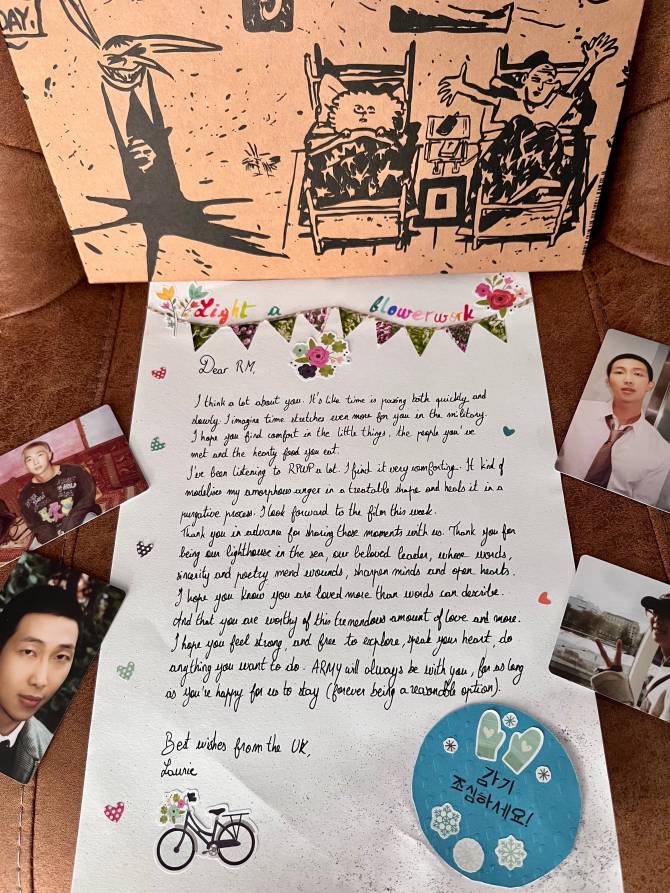 DAY.
Light a blowerwork
Dear RM,
I think a lot about you. It's like time is passing both quickly and
slowly. I imagine time stretches even more for you in the military.
I hope you find comfort in the little things, the people you've
met and the hearty food you eat.
I've been listening to RPWP a lot. I find it very comforting. It kind of
modelises my amorphous anger in a treatable shape and heals it in a
purgative process. I look forward to the film this week.
Thank you in advance for sharing those moments with us. Thank you for
being our lighthouse in the sea, our beloved leader, whose words,
sincerity and poetry mend wounds, sharpen minds and open hearts.
I hope you know you are loved more than words can describe.
And that you are worthy of this tremendous amount of love and more.
I hope you feel strong, and free to explore, speak your heart, do
anything you want to do. ARMY will always be with you, for as long
as you're happy for us to stay (forever being a reasonable option).
Best wishes from the UK,
Laurie
감기
조심하세요!